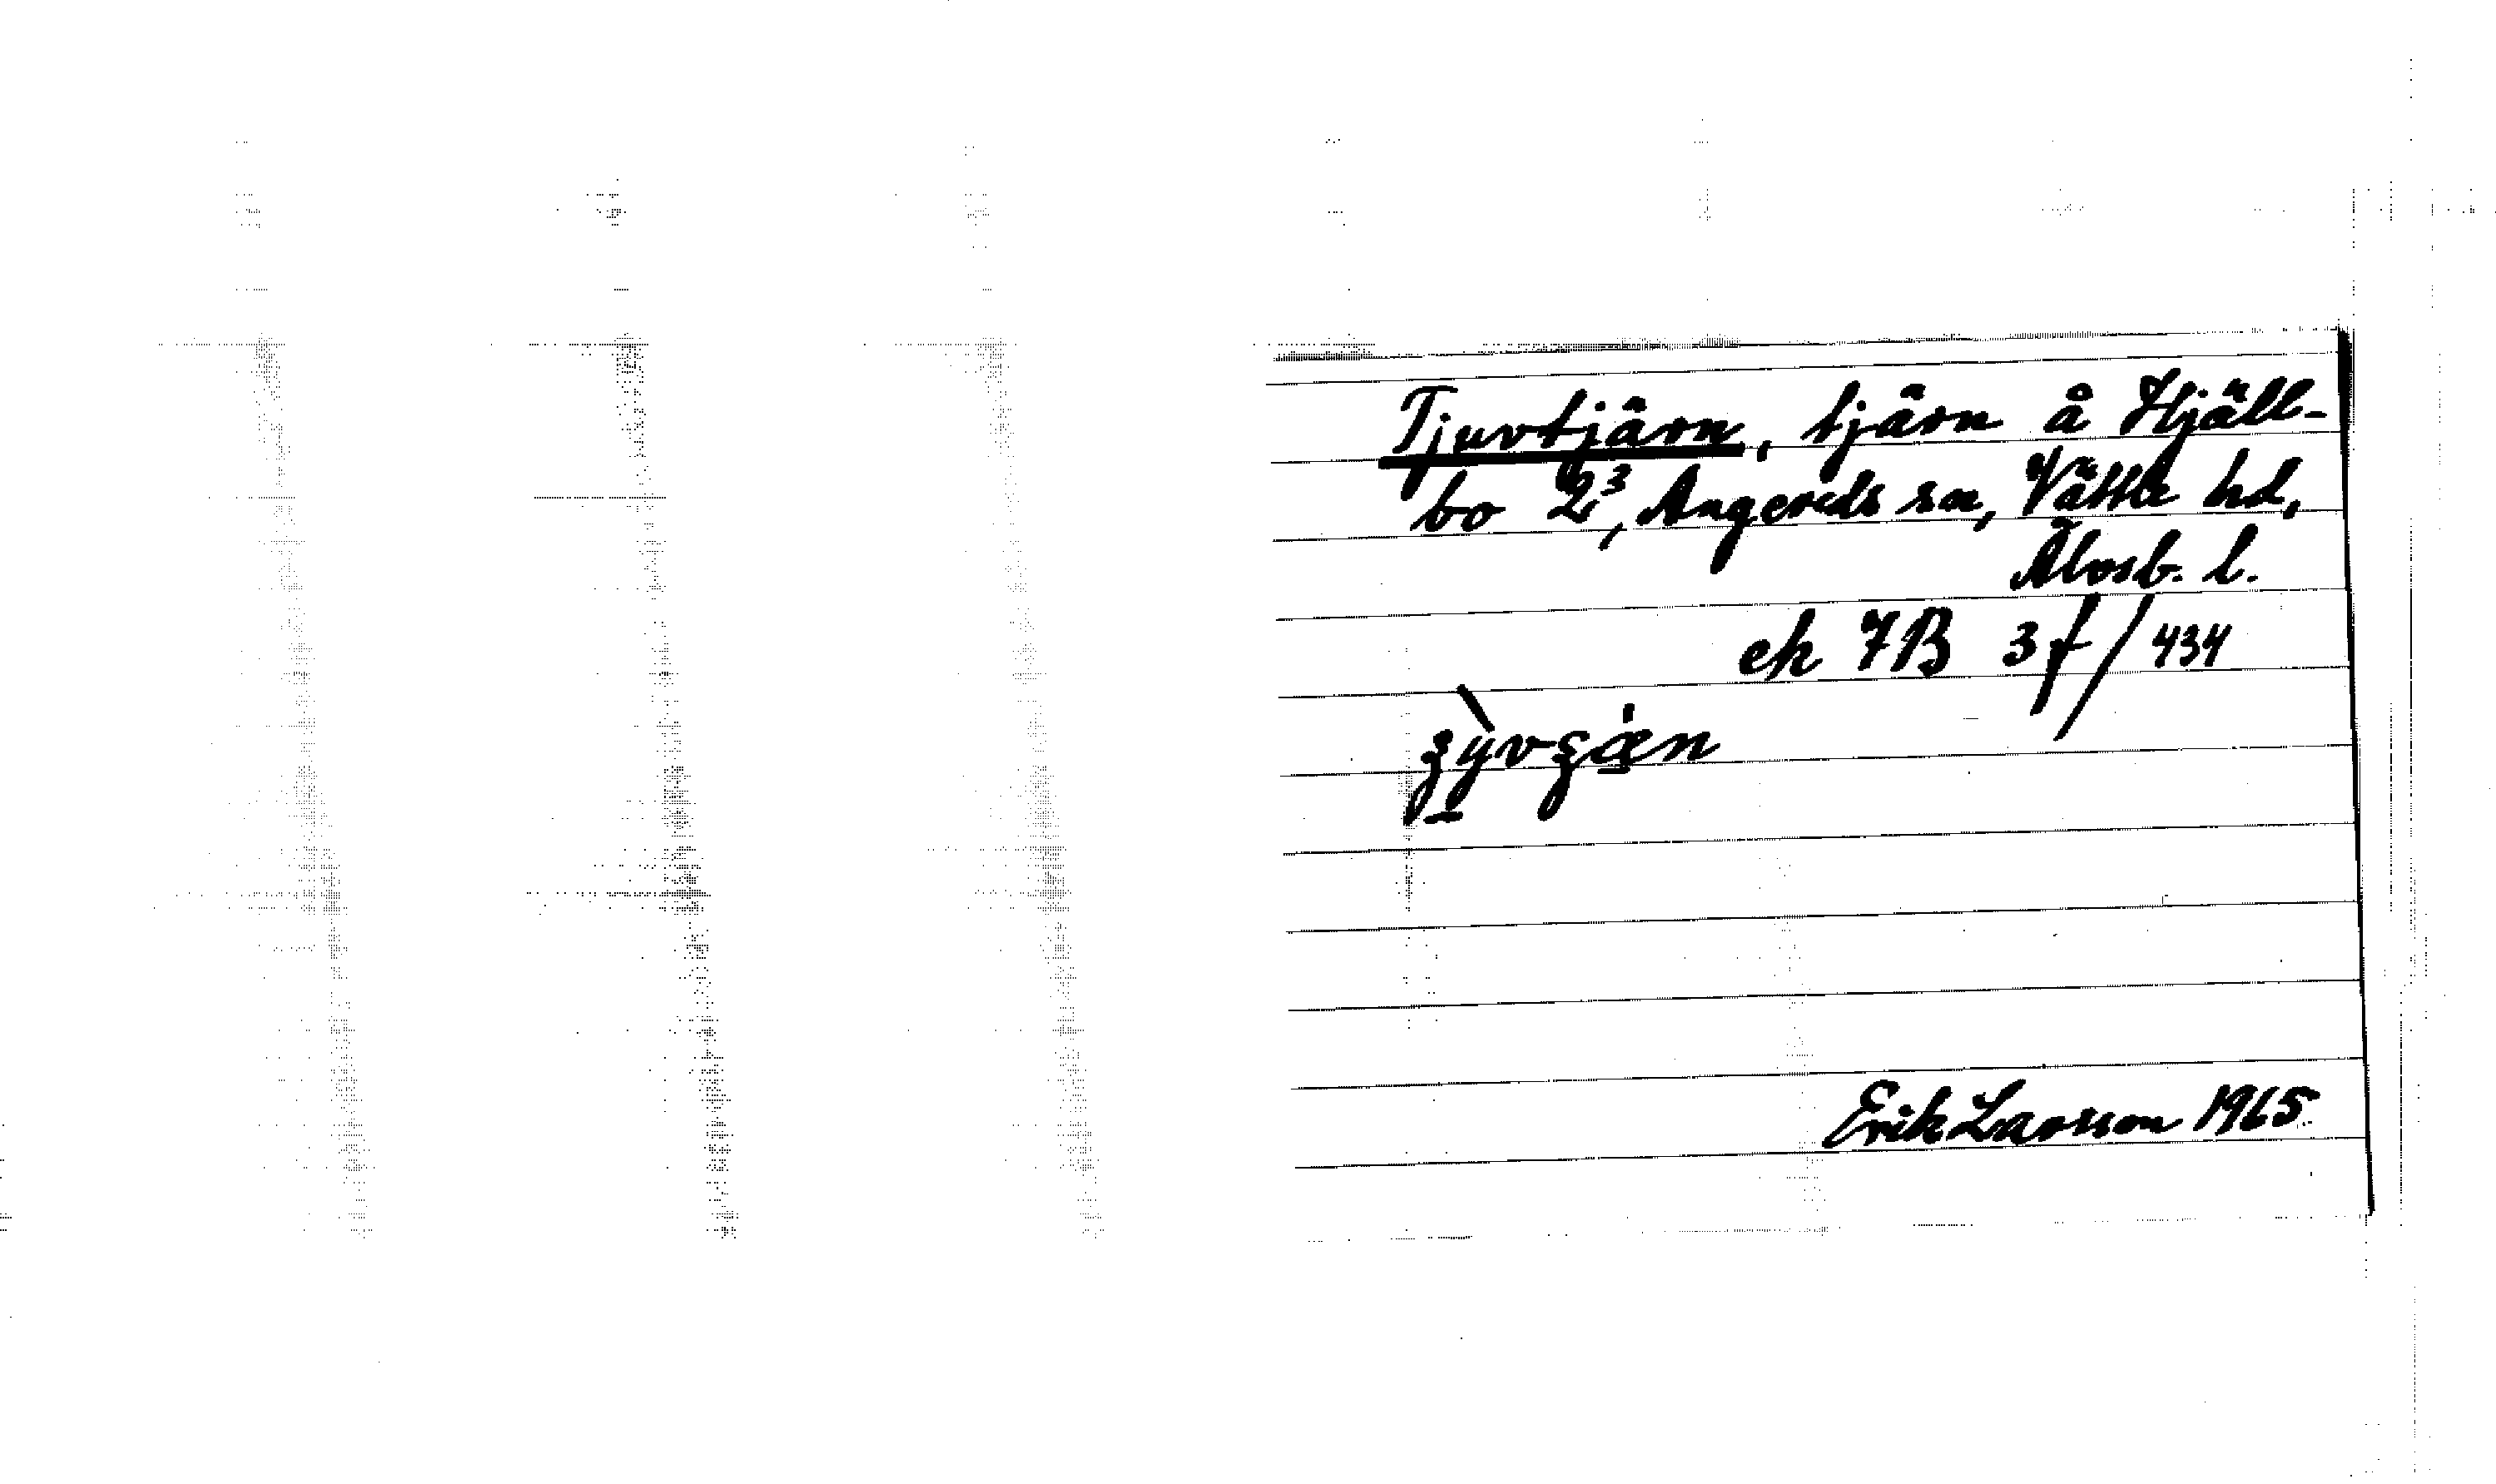 Tjuvtjärn, tjärn å Hjäll-
bo 2³, Angereds sn, Vättle hd,
Älvsb. l.
ek 7B 3f/434
Erik Larsson 1965.